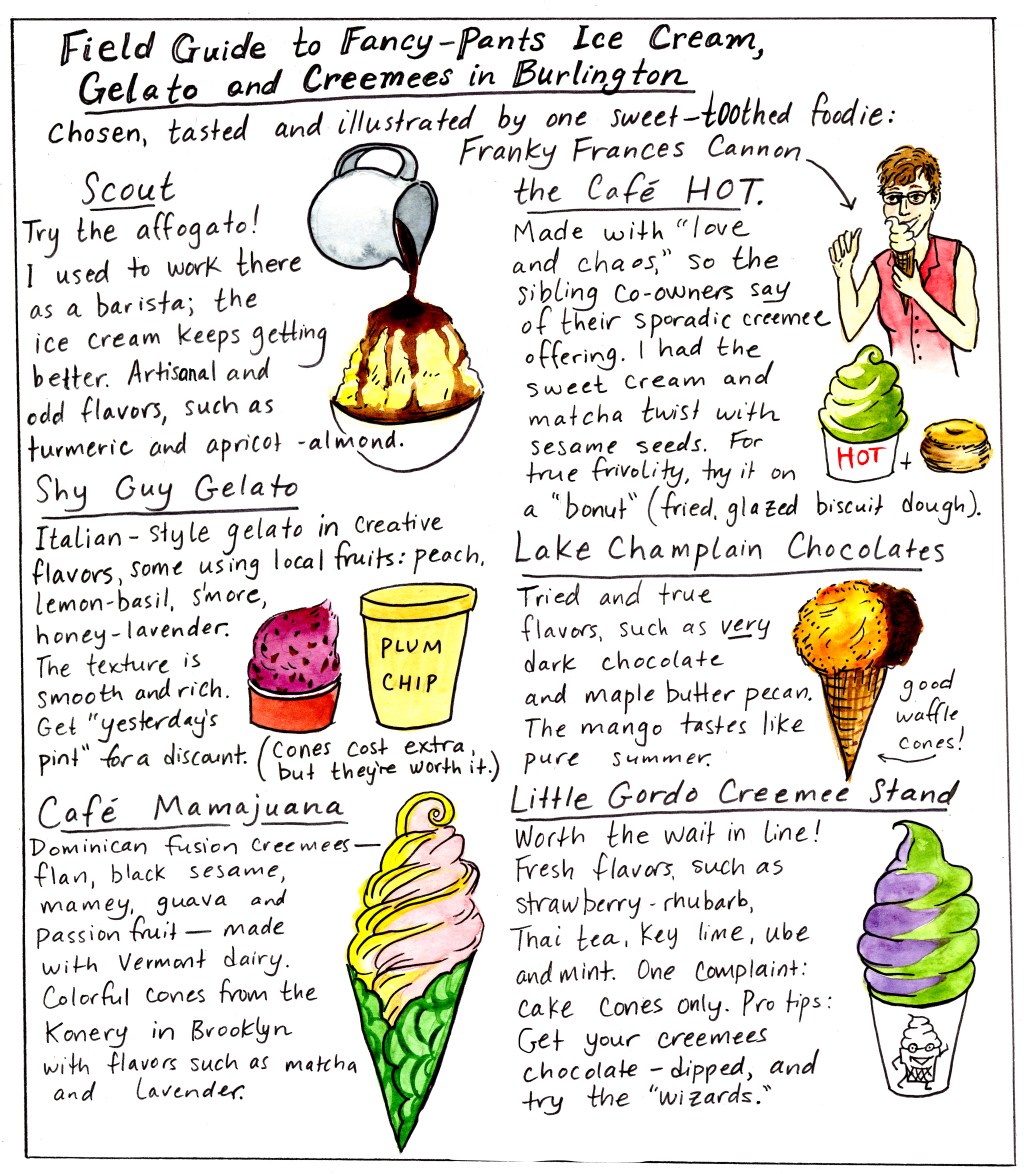 Field Guide to Fancy-Pants Ice Cream,
Gelato and Creemees in Burlington
Chosen, tasted and illustrated by one sweet-toothed foodie:
Franky Frances Cannon
Scout
Try the affogato!
I used to work there
as a barista; the
ice cream keeps getting
better. Artisanal and
odd flavors, such as
turmeric and apricot-almond.
Shy Guy Gelato
Italian-style gelato in creative
flavors, some using local fruits: peach,
lemon-basil, s'more,
honey-lavender.
The texture is
smooth and rich.
Get "yesterday's
pint" for a discount.
(Cones cost extra,
but they're worth it.)
PLUM
CHIP
Café Mamajuana
Dominican fusion creemees—
flan, black sesame,
mamey, guava and
passion fruit — made
with Vermont dairy.
Colorful cones from the
Konery in Brooklyn
with flavors such as matcha
and lavender.
the Café HOT.
Made with "love
and chaos," so the
sibling co-owners say
of their sporadic creemee
offering. I had the
sweet cream and
matcha twist with
sesame seeds. For
true frivolity, try it on
a "bonut" (fried, glazed biscuit dough).
HOT +
Lake Champlain Chocolates
Tried and true
flavors, such as very
dark chocolate
and maple butter pecan.
The mango tastes like
pure summer.
good
waffle
cones!
Little Gordo Creemee Stand
Worth the wait in line!
Fresh flavors, such as
strawberry-rhubarb,
Thai tea, key lime, ube
and mint. One complaint:
cake cones only. Pro tips:
Get your creemees
chocolate-dipped, and
try the "wizards."